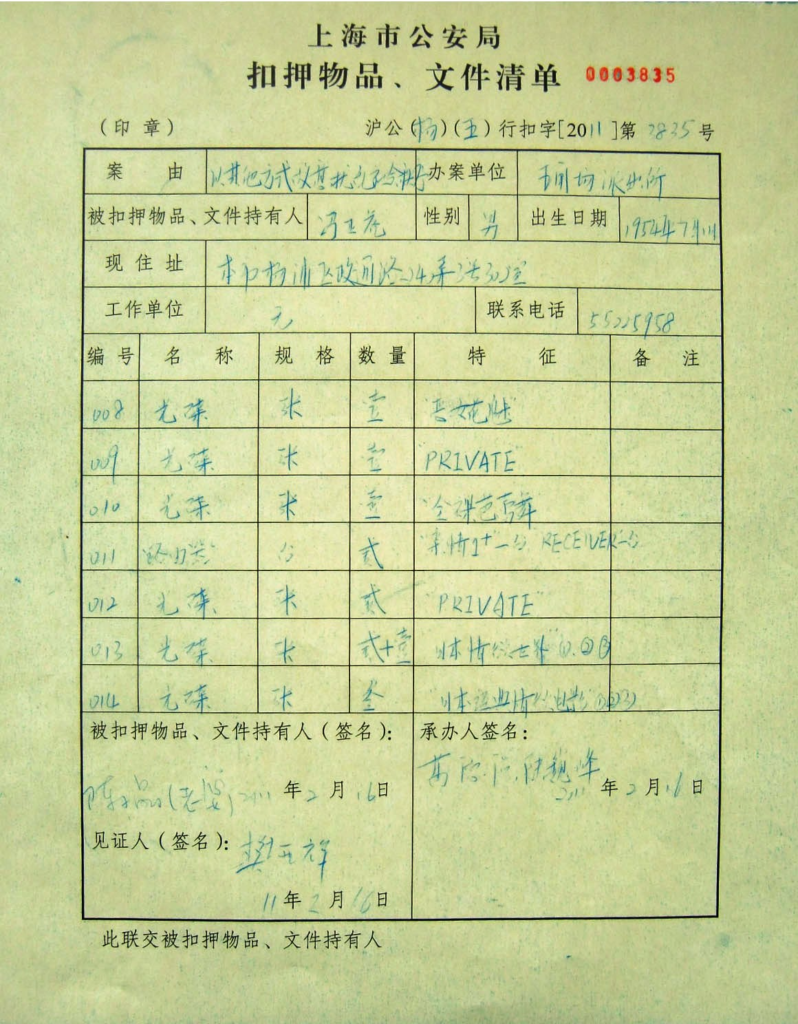 上海市公安局
扣押物品、文件清单 0003835
(印章) 沪公(杨)(五)行扣字[2011]第3835号
案由 以其他方式故意扰乱 办案单位 派出所
被扣押物品、文件持有人 冯正虎 性别 男 出生日期 1954年7月1日
现住址 本市杨浦区政通路240弄3号302室
工作单位 无 联系电话 55225958
编号 名称 规格 数量 特征 备注
008 光碟 张 壹
009 光碟 张 壹 "PRIVATE"
010 光碟 张 壹 "全裸芭蕾舞"
011 台 贰 一台 RECEIVER一台
012 光碟 张 贰 "PRIVATE"
013 光碟 张 贰十壹 "日本 世界" ①.②③
014 光碟 张 叁 "日本 电影" ①②③
被扣押物品、文件持有人(签名): 承办人签名:
(老婆) 2011年2月16日 2011年2月16日
见证人(签名):
11年2月16日
此联交被扣押物品、文件持有人